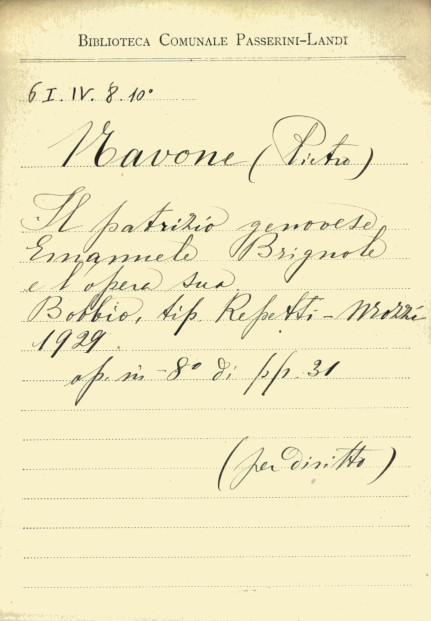 BIBLIOTECA COMUNALE PASSERINI-LANDI
6 I. IV. 8. 10°
Navone (Pietro)
Il patrizio genovese
Emanuele Brignole
e l'opera sua.
Bobbio, tip. Repetti - Mozzi
1929.
op. in - 8° di pp. 31
(per diritto)